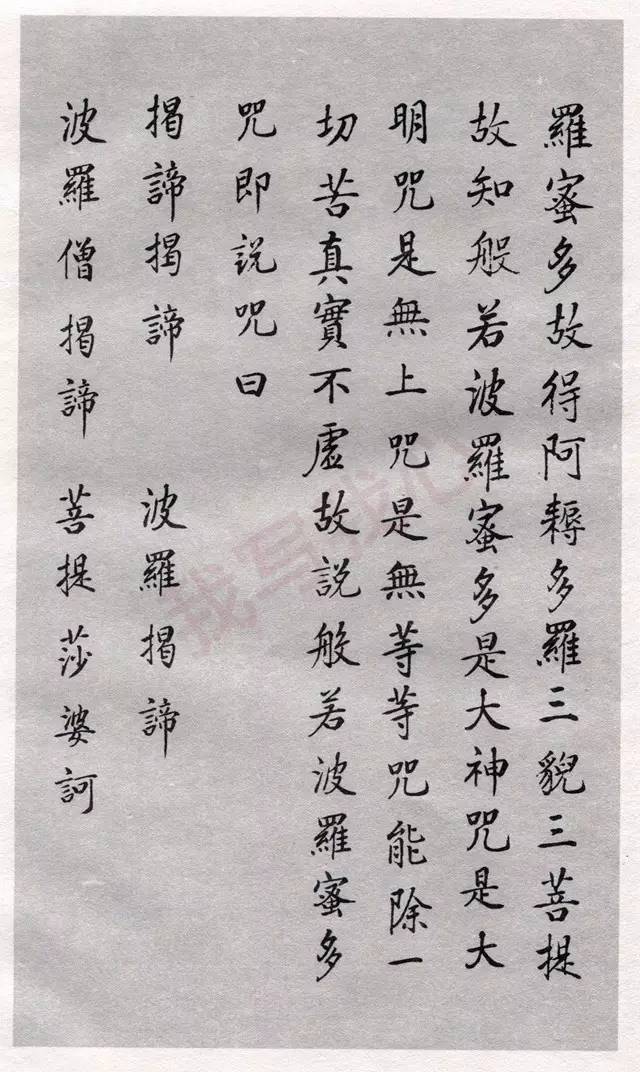 羅蜜多故得阿耨多羅三貌三菩提
故知般若波羅蜜多是大神咒是大
明咒是無上咒是無等等咒能除一
切苦真實不虛故説般若波羅蜜多
咒即説咒曰
揭諦揭諦 波羅揭諦
波羅僧揭諦 菩提莎婆訶
我写我心